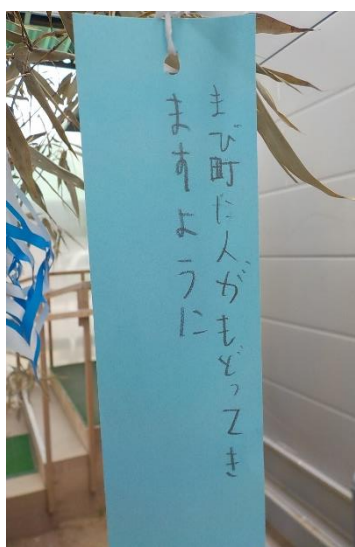 まび町に人がもどってき
ますように